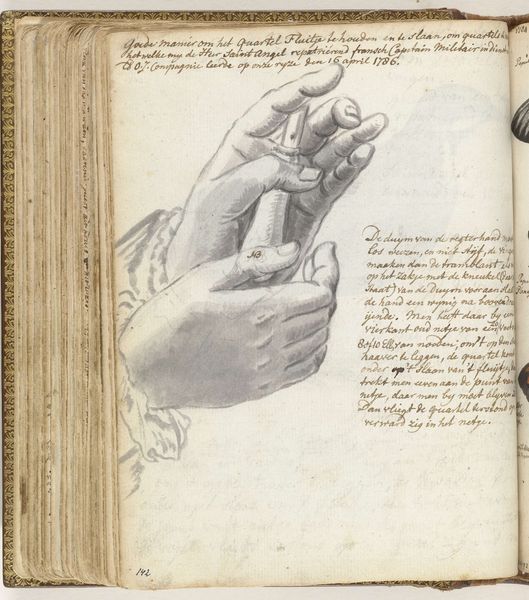 Goede manier om het Quartel Fluitje te houden en te slaan, om quartels te
het welke my de Heer Saint Angel repatriërend fransch Capitain Militair in dienst
d' O: I: Compagnie leerde op onze ryze den 16 april 1786.
NB.
De duym van de regterhand
los weezen, en niet styf, de
maaken dan de tramblant
op het zakje met de kneukel
staat) van de duym voor aen
de hand een wynig na booven
ijinde. Men heeft daar by een
vierkant oud netje van een
8 of 10 Ell: van nooden; om 't op den
haaver te leggen, de quartel komt
onder op 't slaan van 't fluitje,
trekt men even aan de punt van
netje, daar men by moet blyven
Dan vliegt de quartel terstond op
verward zig in het netje.
142